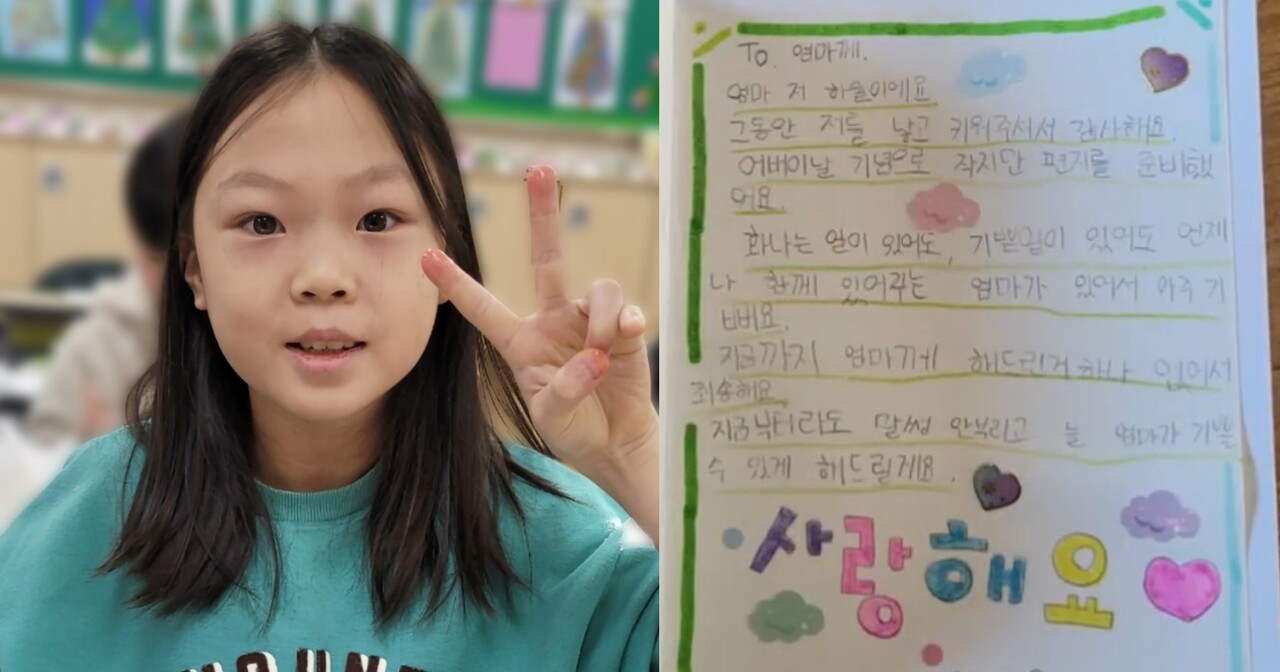 To. 엄마께.
엄마 저 하늘이에요
그동안 저를 낳고 키워주셔서 감사해요.
어버이날 기념으로 작지만 편지를 준비했
어요.
화나는 일이 있어도, 기쁜일이 있어도 언제
나 함께 있어주는 엄마가 있어서 아주 기
뻐요.
지금까지 엄마께 해드린게 하나 없어서
죄송해요.
지금부터라도 말썽 안부리고 늘 엄마가 기쁠
수 있게 해드릴게요.
사랑해요